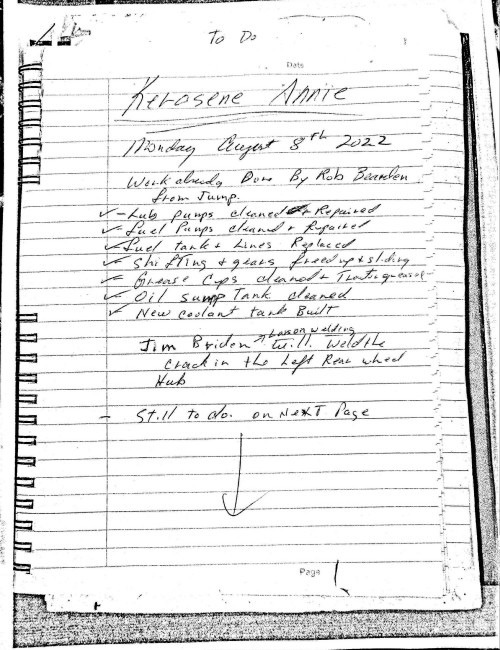 To Do
Date
Kerosene Annie
Monday August 8th 2022
Work already Done By Rob Bearden
from Jump.
✓ - Lub pumps cleaned + Repaired
✓ - fuel Pumps cleaned + Repaired
✓ fuel tank + Lines Replaced
✓ - Shifting + gears freed up + sliding
✓ - Grease Cups cleaned +
✓ - Oil sump Tank cleaned
✓ - New coolant tank Built
Jim Briden → Larsen welding
will Weld the
crack in the Left Rear wheel
Hub
- Still to do. on NEXT Page
Page 1